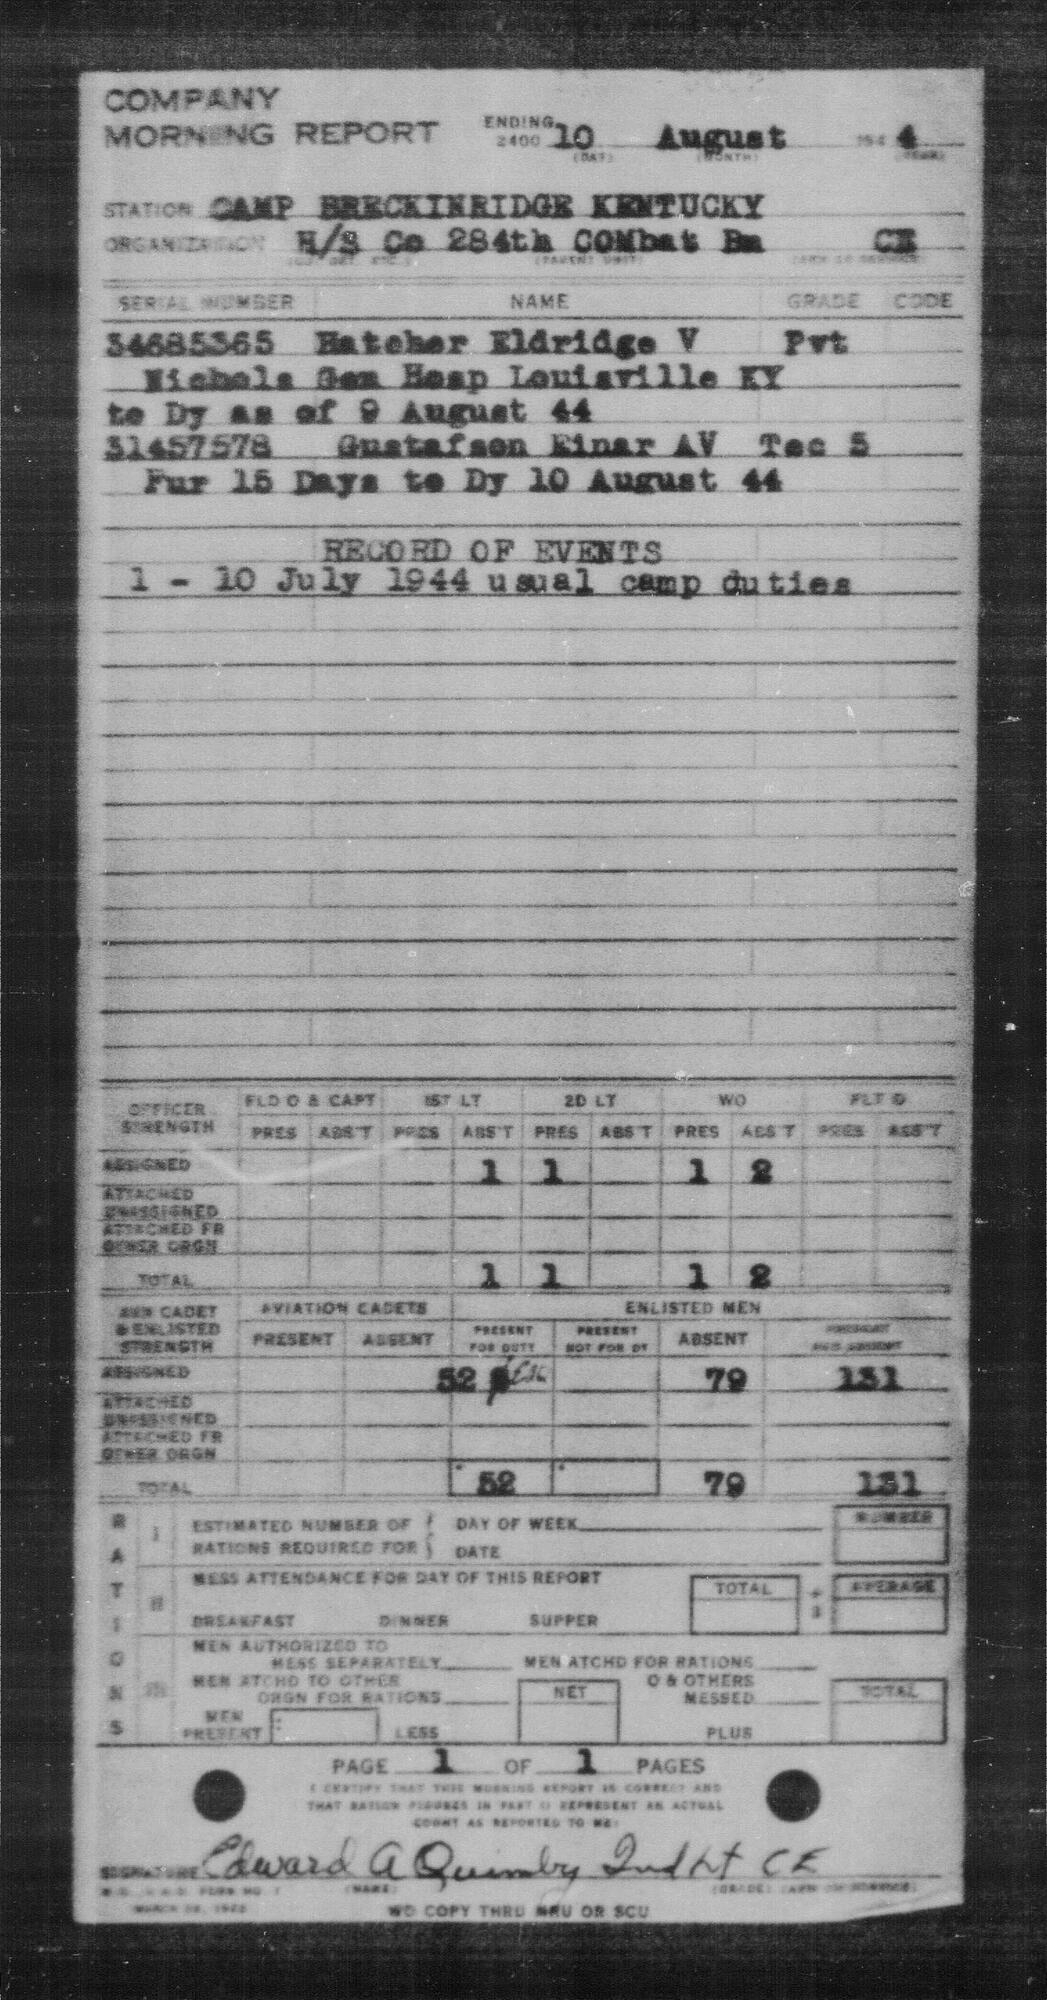 COMPANY
MORNING REPORT ENDING 2400 10 August 194 4
(DAY) (MONTH) (YEAR)
STATION CAMP BRECKINRIDGE KENTUCKY
ORGANIZATION H/S Co 284th COMbat Bn CE
(PARENT UNIT)
SERIAL NUMBER NAME GRADE CODE
34685365 Hatcher Eldridge V Pvt
Nichols Gen Hosp Louisville KY
to Dy as of 9 August 44
31457578 Gustafson Einar AV Tec 5
Fur 15 Days to Dy 10 August 44
RECORD OF EVENTS
1 - 10 July 1944 usual camp duties
OFFICER STRENGTH FLD O & CAPT 1ST LT 2D LT WO FLT O
PRES ABS'T PRES ABS'T PRES ABS'T PRES ABS'T PRES ABS'T
ASSIGNED 1 1 1 2
ATTACHED UNASSIGNED
ATTACHED FR OTHER ORGN
TOTAL 1 1 1 2
AVN CADET & ENLISTED STRENGTH AVIATION CADETS ENLISTED MEN
PRESENT ABSENT PRESENT FOR DUTY PRESENT NOT FOR DY ABSENT PRESENT AND ABSENT
ASSIGNED 52 79 131
ATTACHED UNASSIGNED
ATTACHED FR OTHER ORGN
TOTAL 52 79 131
RATIONS
I ESTIMATED NUMBER OF RATIONS REQUIRED FOR DAY OF WEEK DATE NUMBER
II MESS ATTENDANCE FOR DAY OF THIS REPORT TOTAL ÷ 3 AVERAGE
BREAKFAST DINNER SUPPER
III MEN AUTHORIZED TO MESS SEPARATELY MEN ATCHD FOR RATIONS
MEN ATCHD TO OTHER ORGN FOR RATIONS NET O & OTHERS MESSED TOTAL
MEN PRESENT LESS PLUS
PAGE 1 OF 1 PAGES
I CERTIFY THAT THIS MORNING REPORT IS CORRECT AND
THAT RATION FIGURES IN PART II REPRESENT AN ACTUAL
COUNT AS REPORTED TO ME:
SIGNATURE Edward A Quimby 2nd Lt CE
(NAME) (GRADE) (ARM OR SERVICE)
WD COPY THRU MRU OR SCU